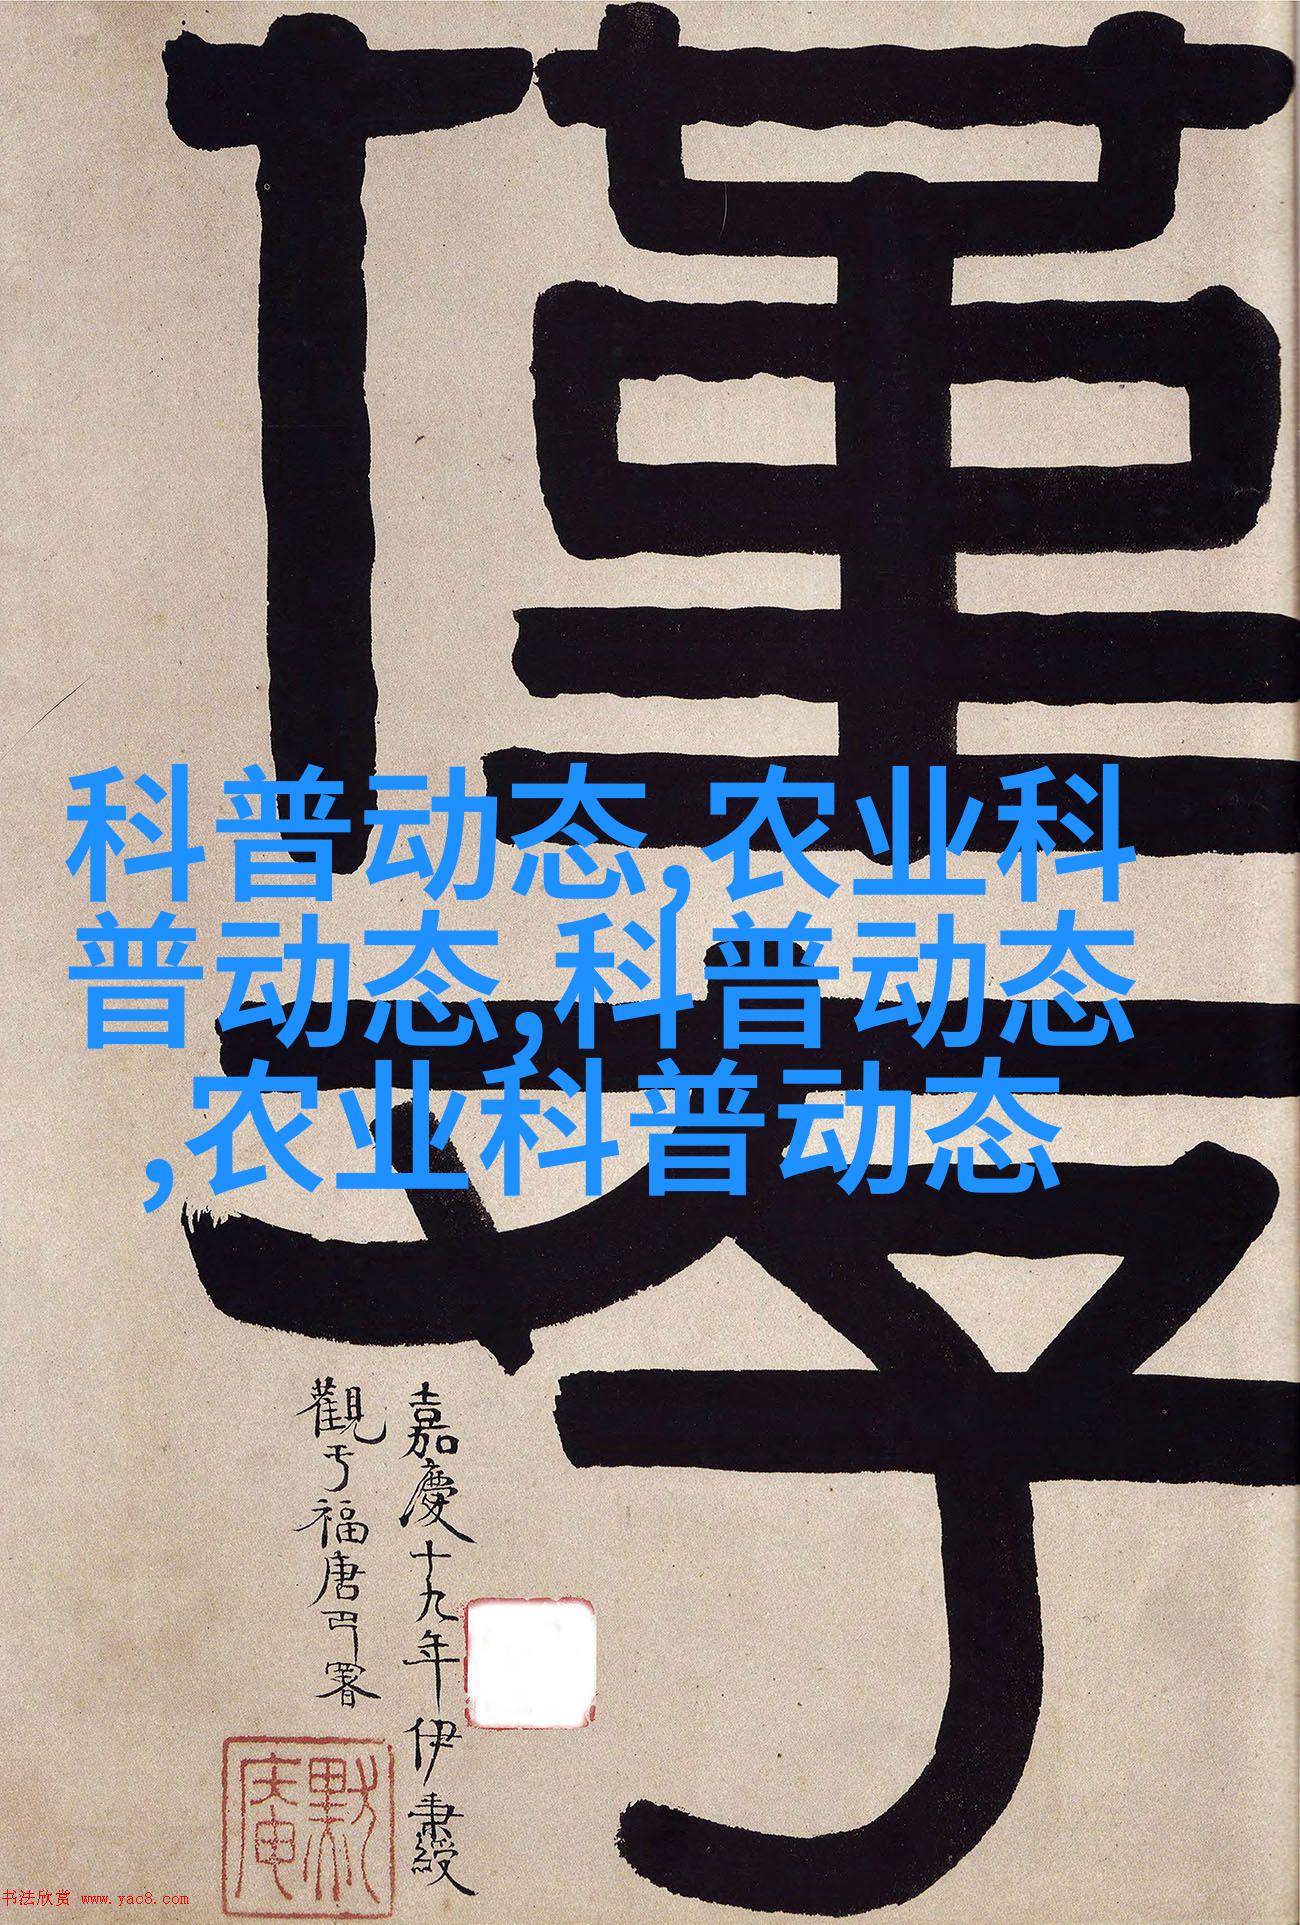 科普动态,农业科
普动态,科普动态
,农业科普动态
嘉慶十九年伊秉綬
觀于福唐署
默庵
书法欣赏 www.yac8.com